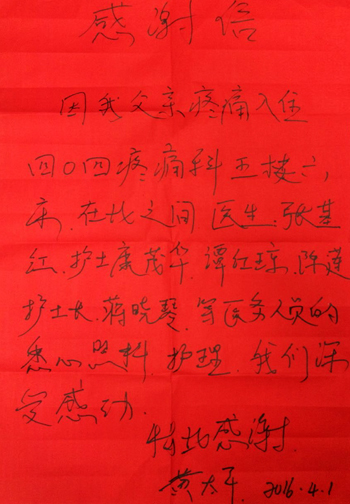 感谢信
因我父亲疼痛入住
四〇四疼痛科五楼六,
床.在此之间医生.张基
红.护士康茂华.谭红琼.陈莲
护士长.蒋晓琴.等医务人员的
悉心照料.护理.我们深
受感动.
特此感谢.
黄太平. 2016.4.1